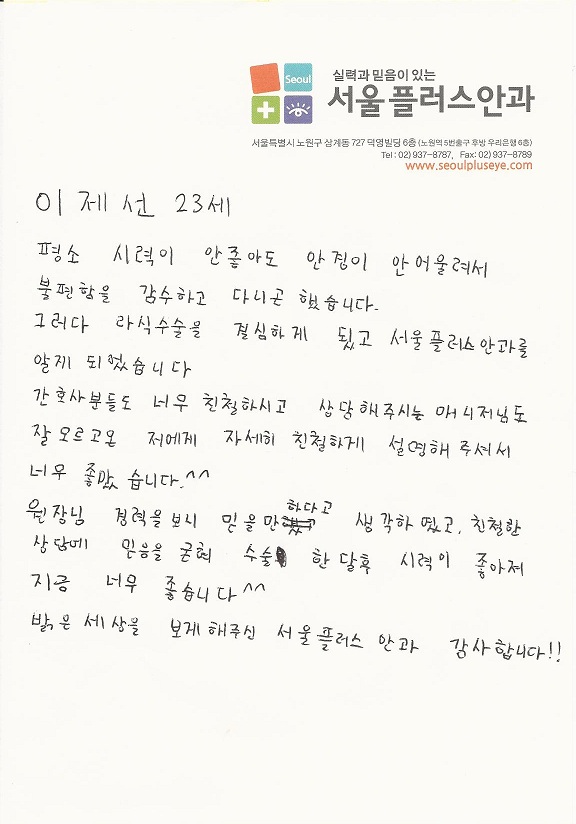 Seoul
실력과 믿음이 있는
서울플러스안과
서울특별시 노원구 상계동 727 덕영빌딩 6층 (노원역 5번출구 후방 우리은행 6층)
Tel : 02) 937-8787, Fax: 02) 937-8789
www.seoulpluseye.com
이제선 23세
평소 시력이 안좋아도 안경이 안어울려서
불편함을 감수하고 다니곤 했습니다.
그러다 라식수술을 결심하게 됬고 서울플러스안과를
알게 되었습니다
간호사분들도 너무 친절하시고 상담해주시는 매니저님도
잘모르고온 저에게 자세히 친절하게 설명해 주셔서
너무 좋았습니다.^^
원장님 경력을보니 믿을만하다고 생각하였고, 친절한
상담에 믿음을 굳혀 수술 한달후 시력이 좋아져
지금 너무 좋습니다^^
밝은세상을 보게해주신 서울플러스 안과 감사합니다!!